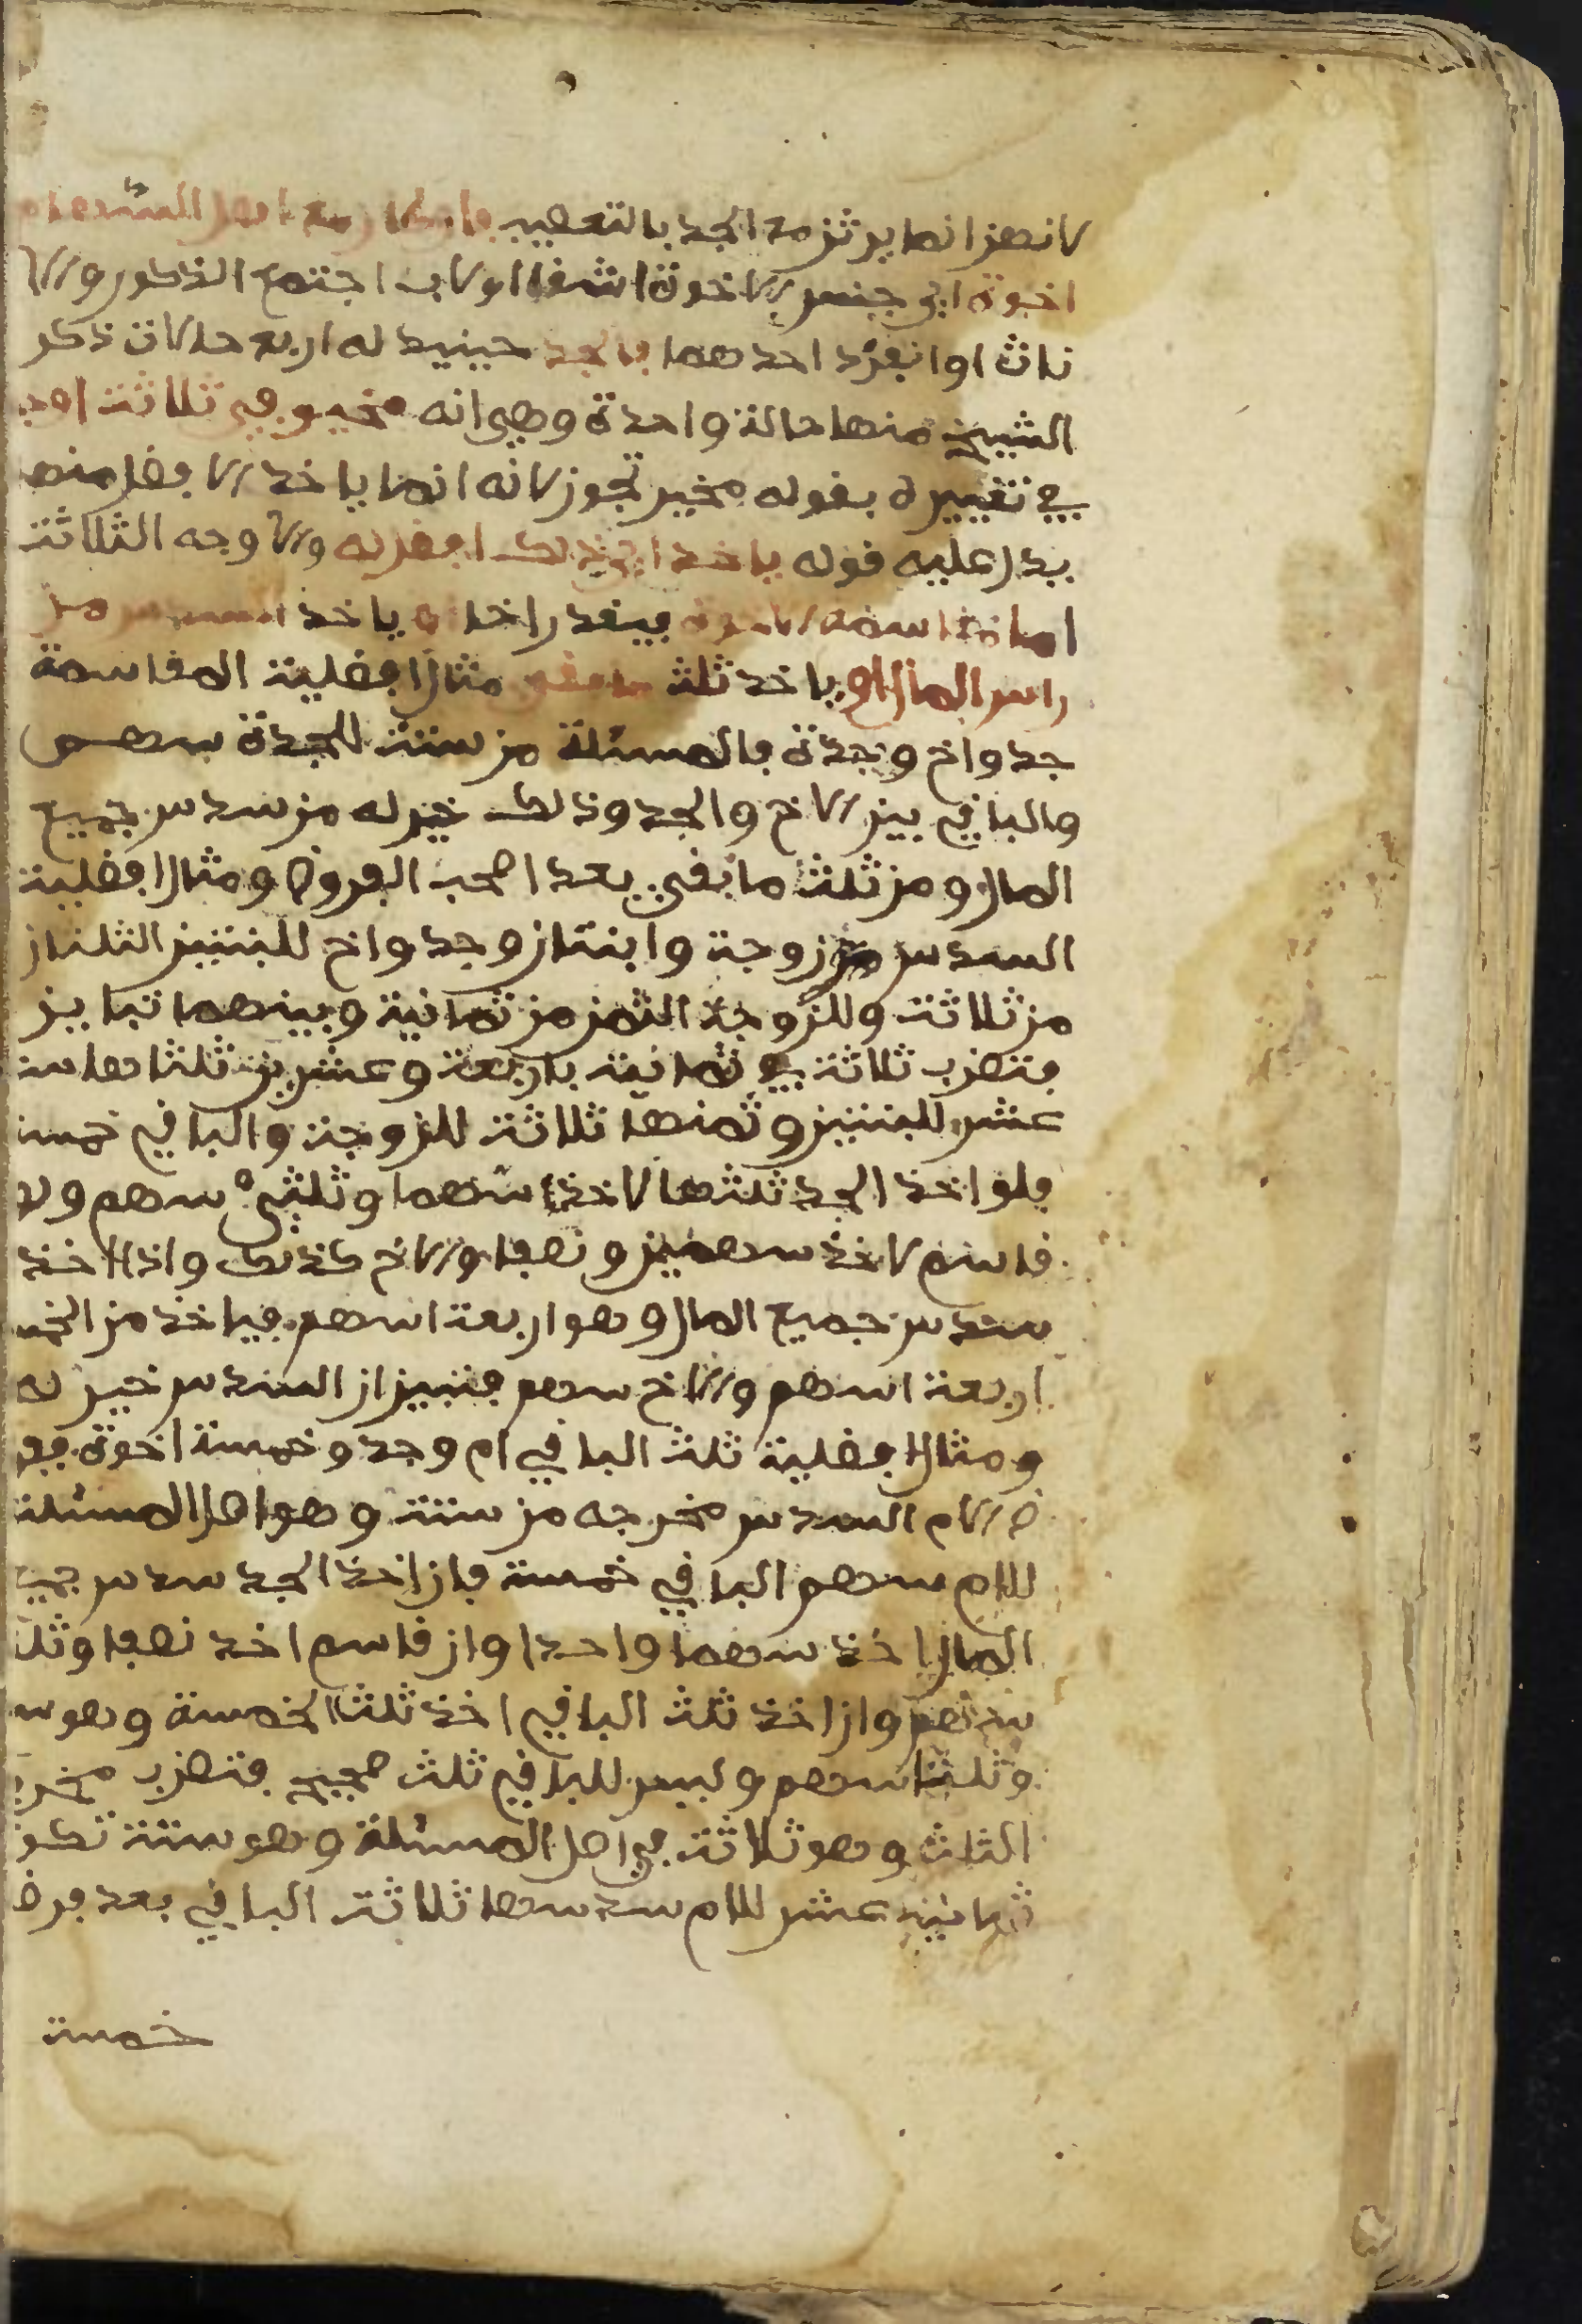 لانهن انما يرثن مع الجد بالتعصيب فان كان مع اهل السهام
اخوة اي جنس الاخوة اشقا او لاب اجتمع الذكور والا
ناث او انفرد احدهما فالجد حينيد له اربع حالات ذكر
الشيخ منها حالة واحدة وهي انه مخير في ثلاثة اوجه
في تعبيره بقوله مخير تجوز لانه انما ياخذ الافضل منها
يدل عليه قوله ياخذ اي ذلك افضل له والاوجه الثلاثة
اما مقاسمة الاخوة فيقدر اخا او ياخذ السدس من
راس المال او ياخذ ثلث ما بقي مثال افضلية المقاسمة
جد واخ وجدة فالمسئلة من ستة للجدة سهم
والباقي بين الاخ والجد وذلك خير له من سدس جميع
المال ومن ثلث ما بقي بعد اصحب الفروض ومثال افضلية
السدس زوجة وابنتان وجد واخ للبنتين الثلثان
من ثلاثة وللزوجة الثمن من ثمانية وبينهما تباين
فتضرب ثلاثة في ثمانية باربعة وعشرين ثلثاها ستة
عشر للبنتين وثمنها ثلاثة للزوجة والباقي خمسة
فلو اخذ الجد ثلثها لاخذ سهما وثلثي سهم ولو
قاسم لاخذ سهمين ونصفا والاخ كذلك واذا اخذ
سدس جميع المال وهو اربعة اسهم فياخذ من الخمسة
اربعة اسهم والاخ سهم فتبين ان السدس خير له
ومثال افضلية ثلث الباقي ام وجد وخمسة اخوة ففر
ض الام السدس مخرجه من ستة وهو اصل المسئلة
للام سهم الباقي خمسة فان اخذ الجد سدس جميع
المال اخذ سهما واحدا وان قاسم اخذ نصفا وثلث
سهم وان اخذ ثلث الباقي اخذ ثلث الخمسة وهو سهم
وثلثا سهم وليس للباقي ثلث صحيح فتضرب مخرج
الثلث وهو ثلاثة في اصل المسئلة وهو ستة تكون
ثمانية عشر للام سدسها ثلاثة الباقي بعد فرض
خمسة